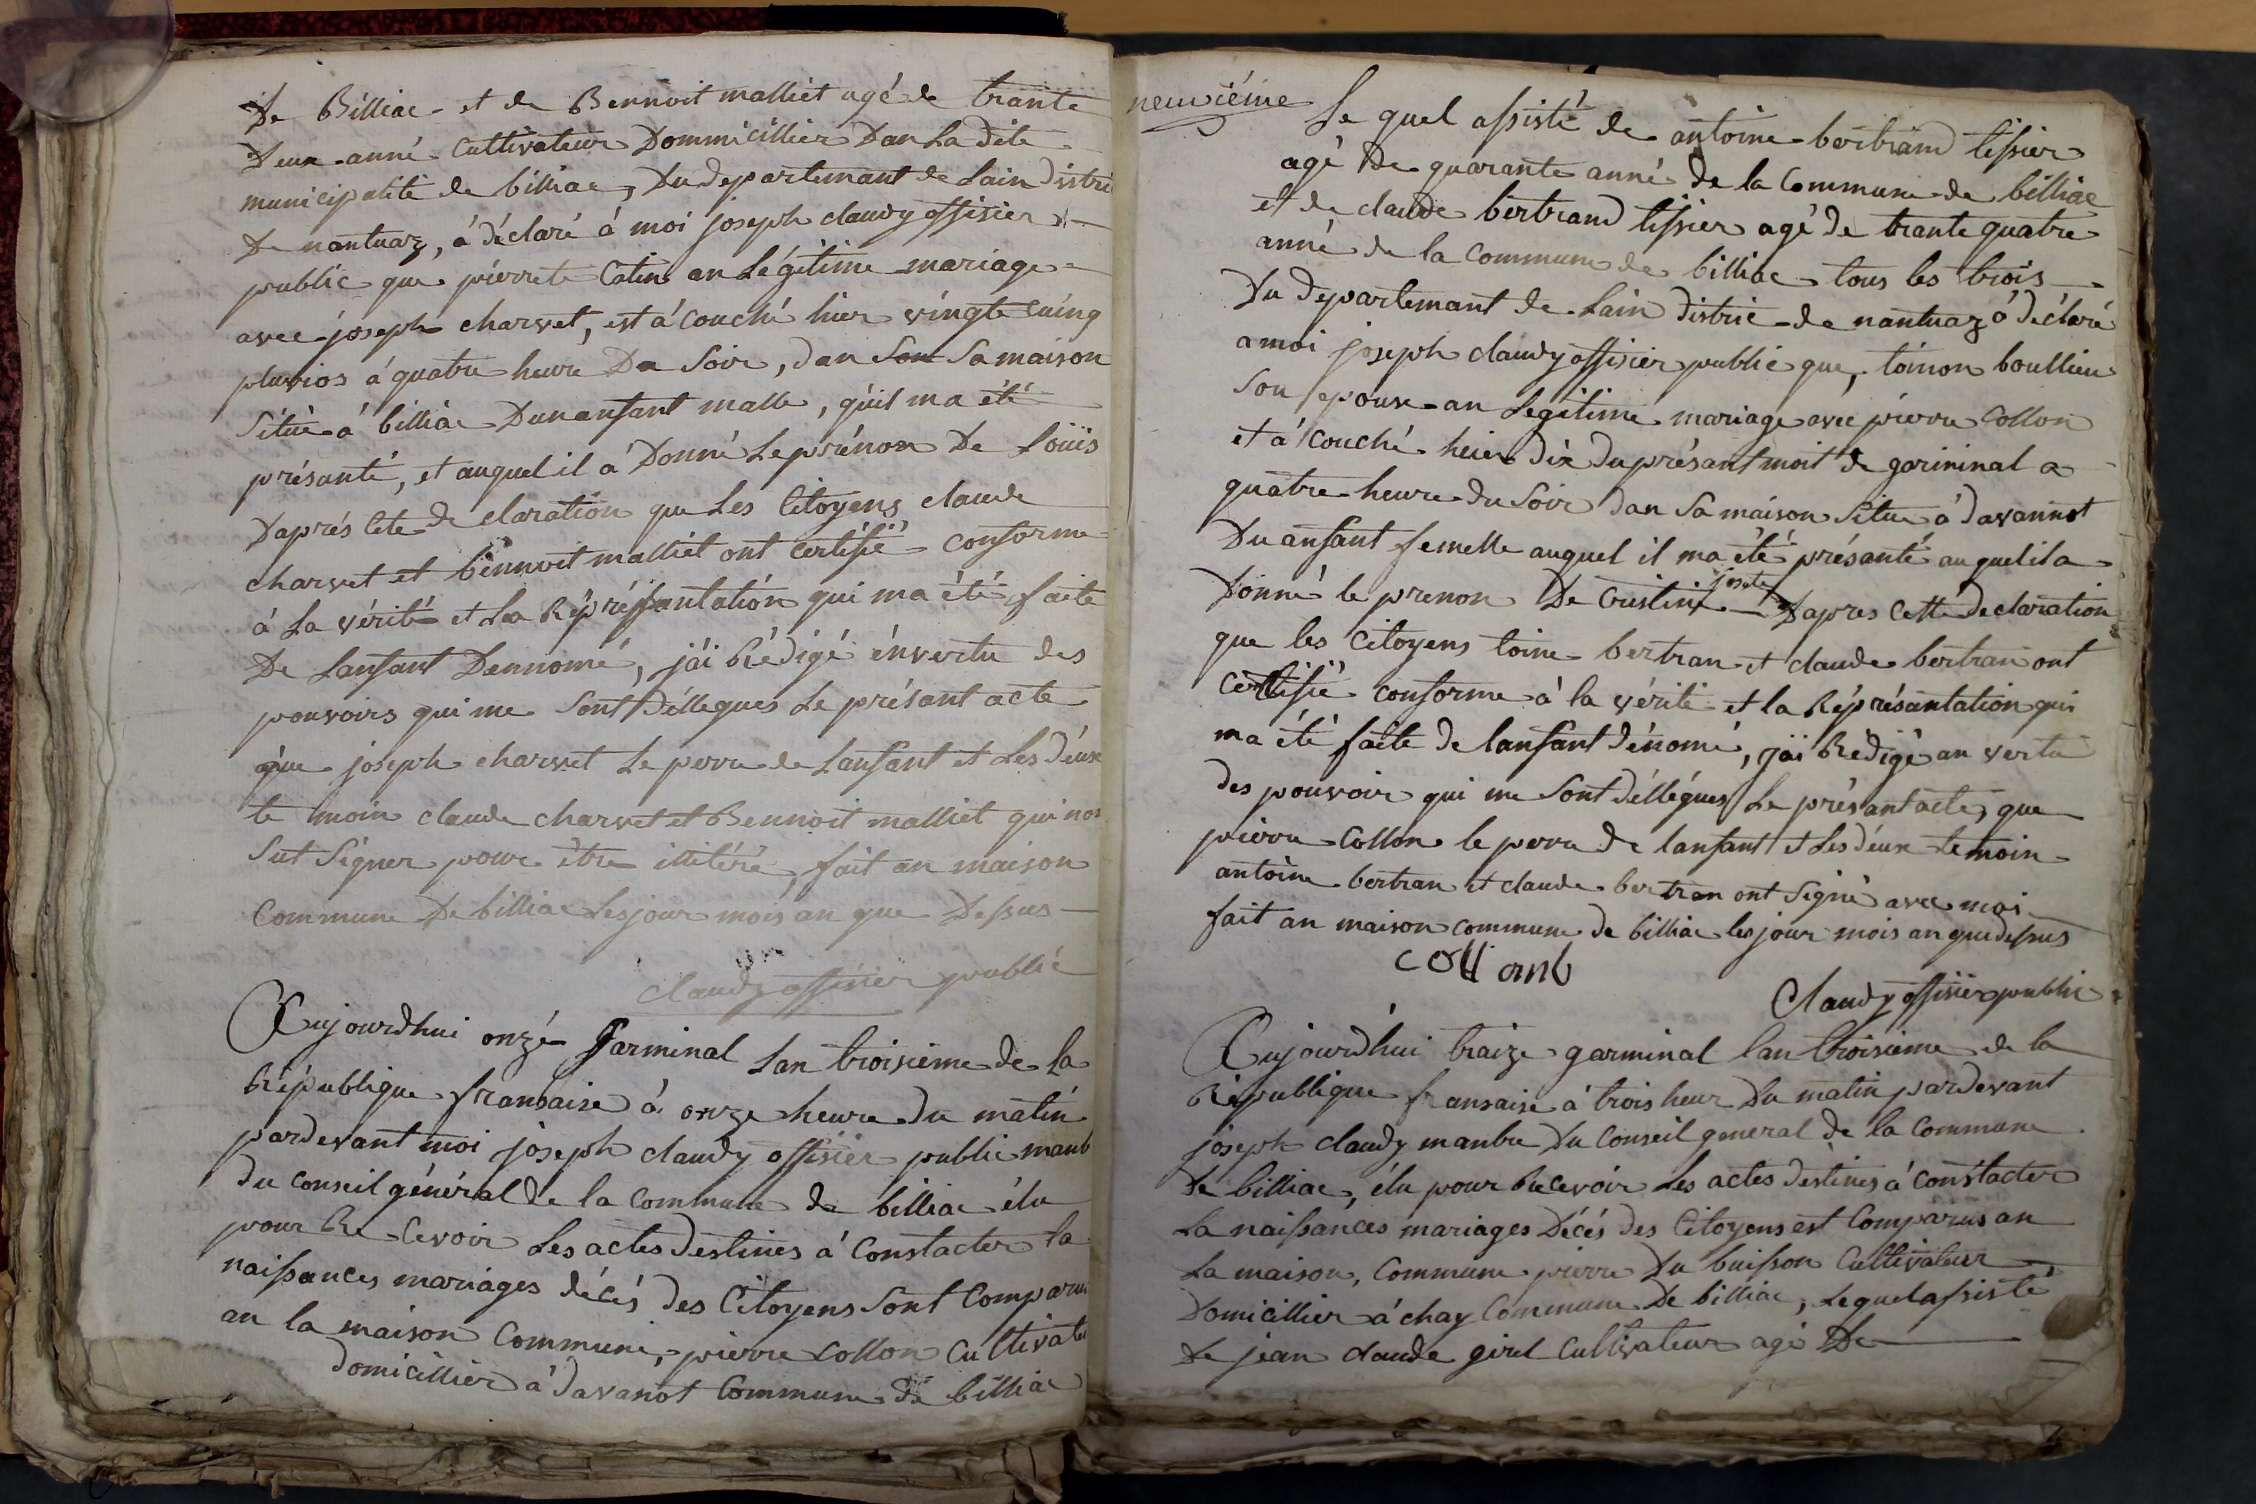 De Billiac et de Bennoit malliet agé de trante
Deux anné Cultivateur Dommicillier Dan La dite
municipalité de billiac, Du departemant de Lain distri
De nantuaz, á déclaré á moi joseph claudy offisier
public que pierrete Catin an Légitime mariage
avec joseph charvet, est á couché hier vingte cuinq
pluvios á quatre heure Du Soir, dan Son Sa maison
Situé á billiac Dun anfant malle, quil ma été
présanté, et auquel il á Donné Le prénon De Loüis
Daprés cete de claration que Les Citoyens claude
charvet et bennoit malliet ont certifié conforme
á La vérité et La Répréssantation qui ma été faite
De Lanfant Dennomé, jái Rédigé én vertu des
pouvoirs qui me Sont Délleques Le présant acte
que joseph charvet Le perre de Lanfant et Les deux
te moin claude charvet et Bennoit malliet qui non
Sut Signer pour être illitéré, fait an maison
Commune De billiac Les jour mois an que Dessus
claudy offisier public
Aujourdhui onze garminal Lan troisieme de La
République fransaise á onze heure du matin
pardevant moi joseph claudy offisier public manb
du Conseil général de la commune de billiac élu
pour Re cevoir Les actes destinés á Constacter la
naissances mariages décés des Citoyens Sont Comparu
an la maison Commune, pierre Collon Cultivate
domicillier á davanot Commune de billiac
neuviéme
Le quel assisté de antoine bertrand tissier
agé De quarante anné de la Commune de billiac
et de claude bertrand tissier agé de trante quatre
anné de la Commune de billiac tous les trois
Du departemant de Lain distric de nantuaz á déclaré
a moi joseph claudy offisier public que, toinon boullieu
Son epouse an Legitime mariage avec pierre Collon
et á couché heier dix du présant moit de garininal a
quatre heure du Soir dan Sa maison Situe á davannot
Du anfant femelle auquel il ma été présanté auquel il a
Donné le prenon De Cristine josete Dapres Cette declaration
que les Citoyens toine bertran et claude bertran ont
certifié conforme á la vérité et la Réprésantation qui
ma été faite de lanfant dénomé, jái Rédigé an vertu
des pouvoir qui me Sont Déllégues Le présant acte, que
pierre Collon le perre de lanfant et Les deux temoin
antoine bertran et claude bertran ont Signé avec moi
fait an maison commune de billiac les jour mois an que dessus
collomb
Claudy offisier public
Aujourdhui traize garminal lan troisieme de la
République fransaise á trois heur Du matin pardevant
joseph claudy manbre Du Conseil general de la Commune
De billiac, élu pour Recevoir Les actes destines á Constacter
La naissances mariages Décés des Citoyens est Comparus an
La maison, Commune pierre Du buisson Cultivateur
Domicillier á chay Commune De billiac, Lequel assisté
De jean claude girel Cultivateur agé De